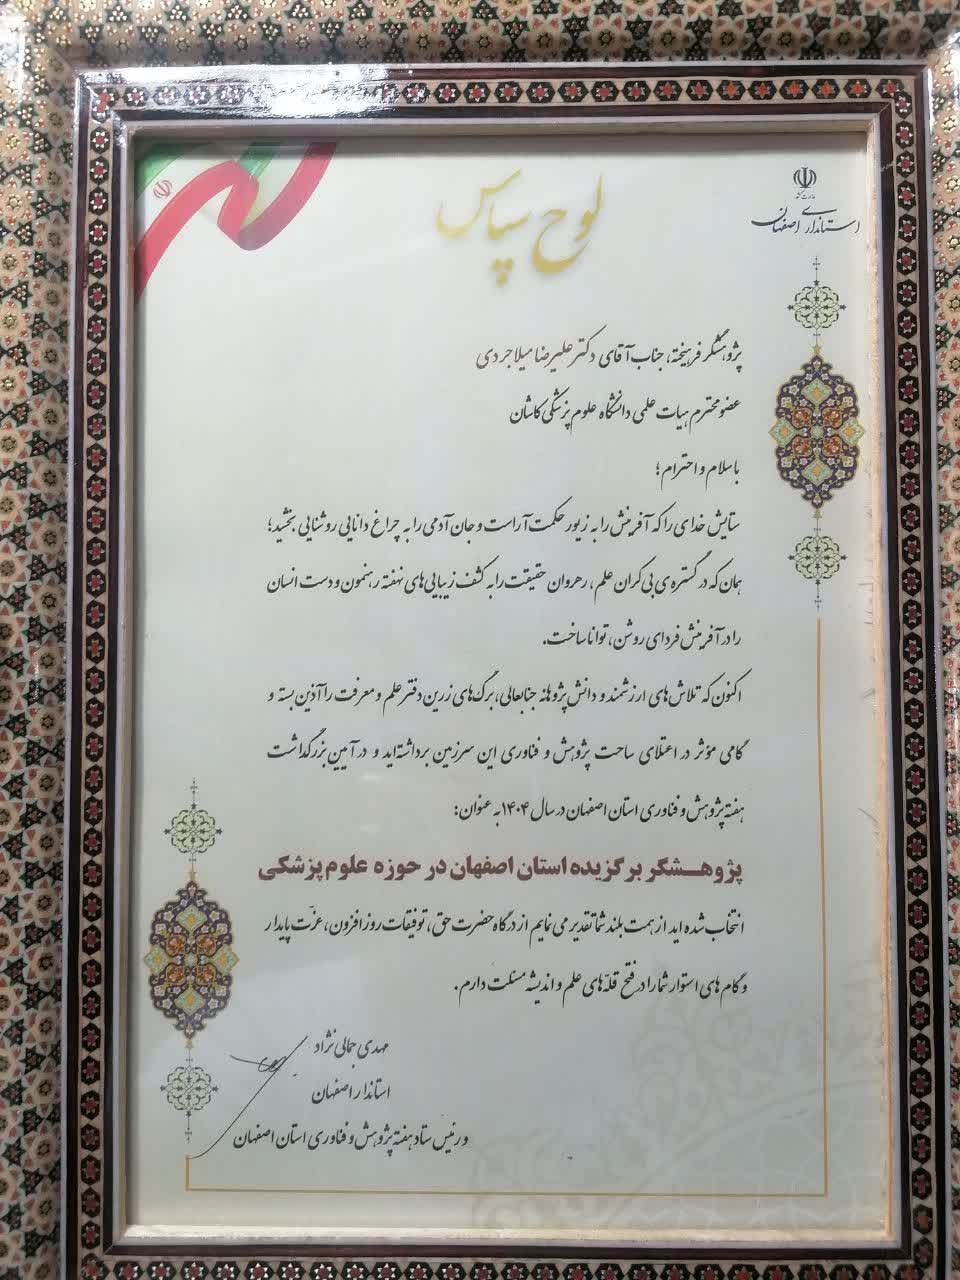 وزارت کشور
استانداری اصفهان
لوح سپاس
پژوهشگر فرهیخته، جناب آقای دکتر علیرضا میلاجردی
عضو محترم هیات علمی دانشگاه علوم پزشکی کاشان
با سلام و احترام؛
ستایش خدای را که آفرینش را به زیور حکمت آراست و جان آدمی را به چراغ دانایی روشنایی بخشید؛
همان که در گستره‌ی بی‌کران علم، رهروان حقیقت را به کشف زیبایی‌های نهفته رهنمون و دست انسان
را در آفرینش فردای روشن، توانا ساخت.
اکنون که تلاش‌های ارزشمند و دانش‌پژوهانه جنابعالی، برگ‌های زرین دفتر علم و معرفت را آذین بسته و
گامی مؤثر در اعتلای ساحت پژوهش و فناوری این سرزمین برداشته‌اید و در آیین بزرگداشت
هفته پژوهش و فناوری استان اصفهان در سال ۱۴۰۴ به عنوان:
پژوهشگر برگزیده استان اصفهان در حوزه علوم پزشکی
انتخاب شده اید از همت بلند شما تقدیر می نمایم از درگاه حضرت حق، توفیقات روزافزون، عزّت پایدار
و گام های استوار شما را در فتح قلّه‌های علم و اندیشه مسئلت دارم.
مهدی جمالی نژاد
استاندار اصفهان
و رئیس ستاد هفته پژوهش و فناوری استان اصفهان